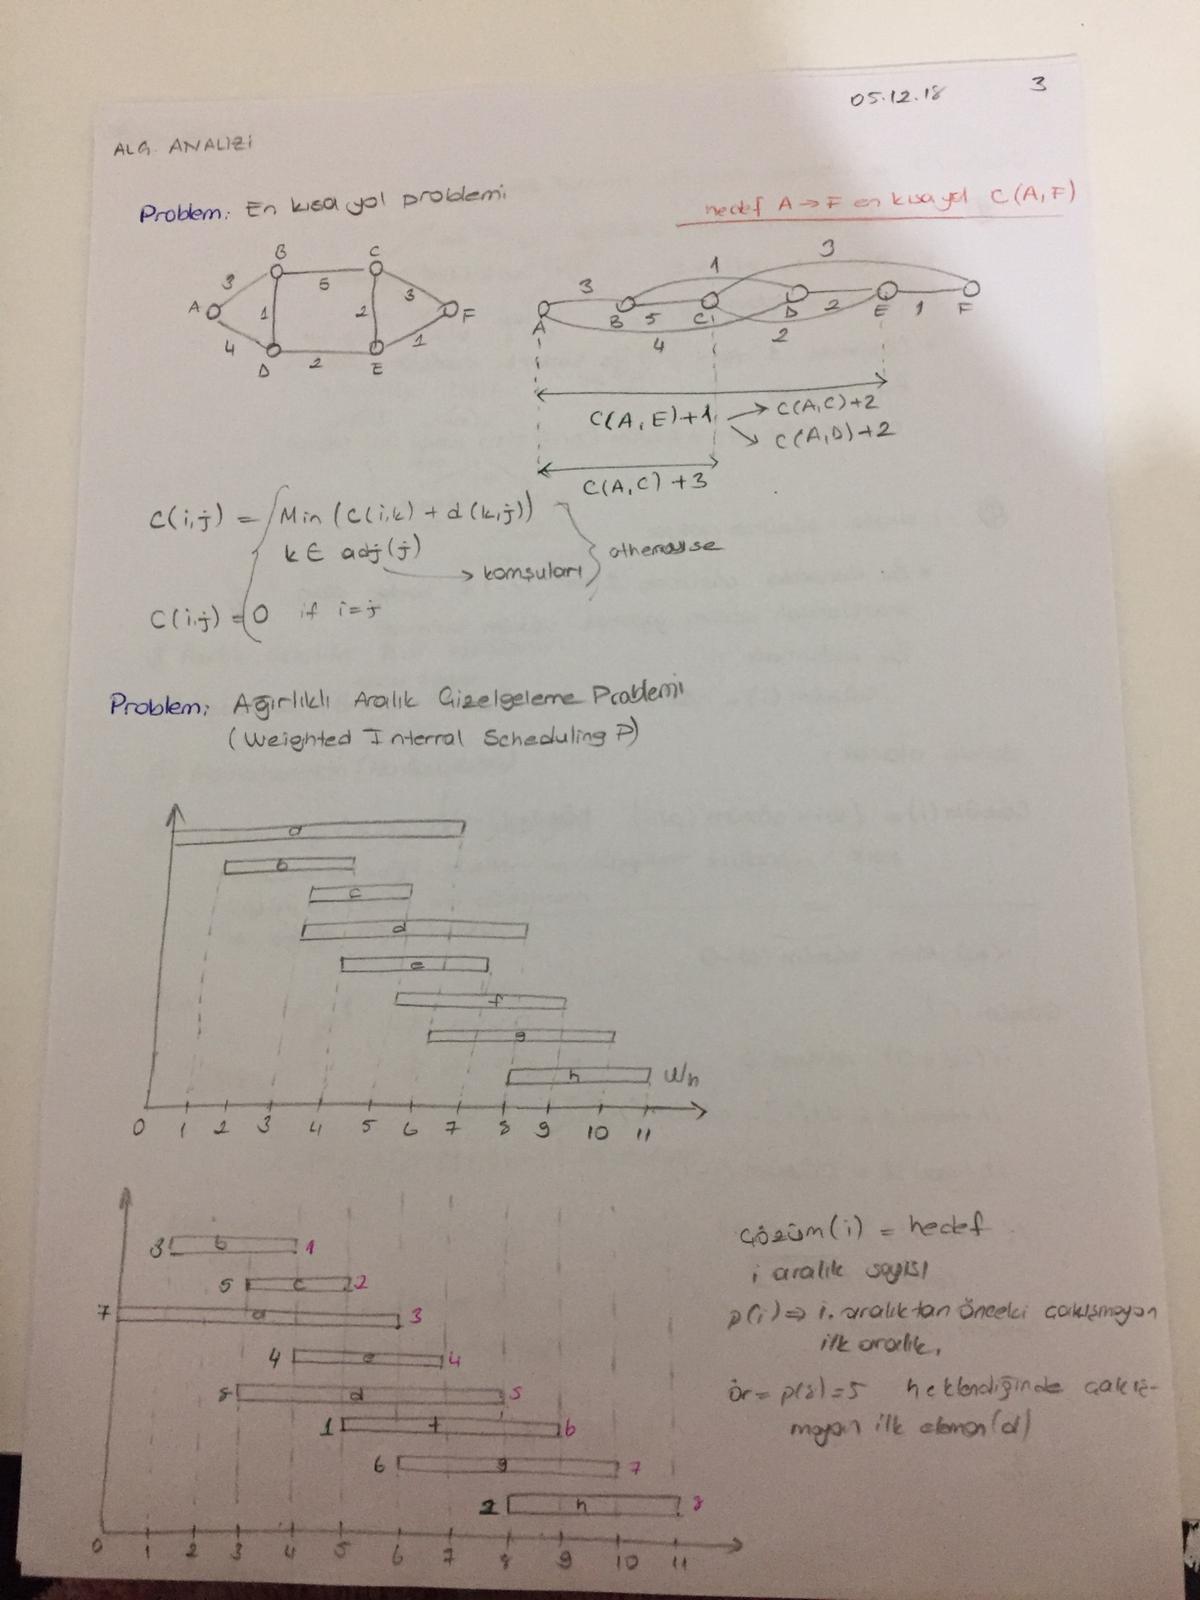 05.12.18 3
ALG. ANALİZİ
Problem: En kısa yol problemi
hedef A → F en kısa yol C(A,F)
B C
3 5 3
A 1 2 F
4 2 1
D E
3 1 3
A B 5 C D 2 E 1 F
4 2
C(A,E)+1 → C(A,C)+2
→ C(A,D)+2
C(A,C)+3
C(i,j) = Min (C(i,k) + d(k,j))
k ∈ adj(j) → komşuları
otherwise
C(i,j) = 0 if i=j
Problem: Ağırlıklı Aralık Çizelgeleme Problemi
(Weighted Interval Scheduling P)
a
b
c
d
e
f
g
h Wh
0 1 2 3 4 5 6 7 8 9 10 11
3 b 1
5 c 2
7 a 3
4 e 4
8 d 5
1 f 6
6 g 7
2 h 8
0 1 2 3 4 5 6 7 8 9 10 11
Çözüm(i) = hedef
i aralık sayısı
p(i) ⇒ i. aralıktan önceki çakışmayan
ilk aralık.
ör = p(8)=5 h eklendiğinde çakış-
mayan ilk eleman (d)